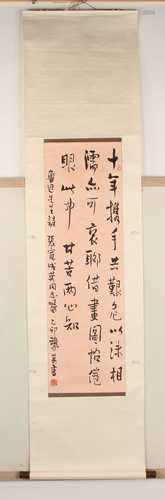 十年携手共艱危以沫相
濡亦可哀聊借畫圖怡倦
眼此中甘苦兩心知
魯迅先生詩
己卯